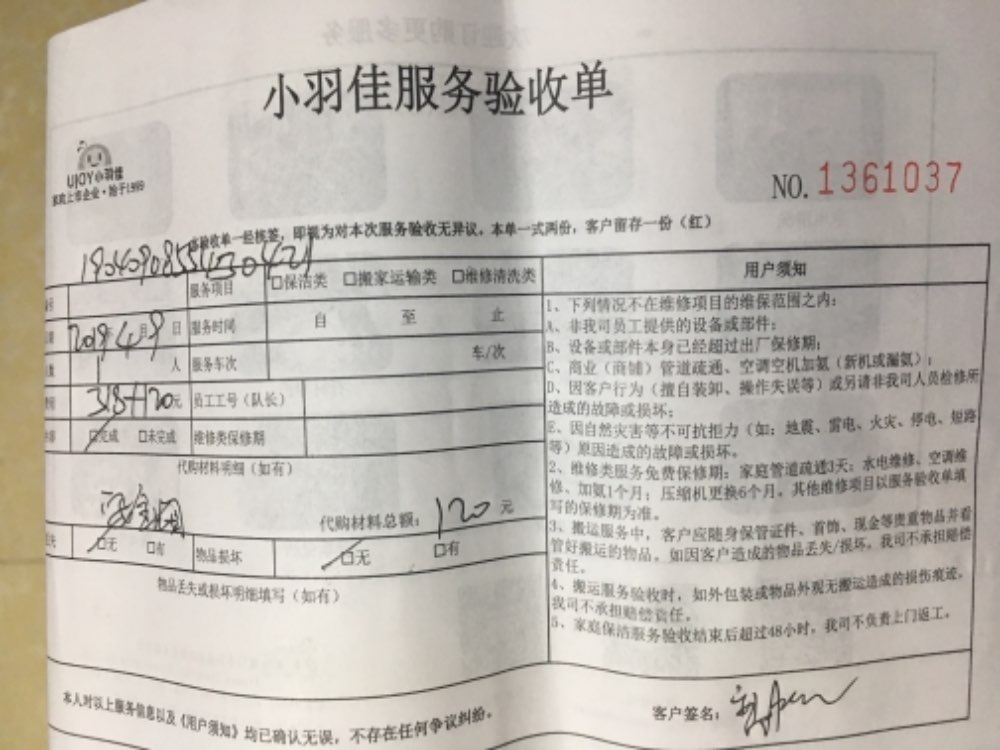 小羽佳服务验收单
UJOY小羽佳
家政上市企业·始于1999
NO. 1361037
验收单一经核签，即视为对本次服务验收无异议，本单一式两份，客户留存一份（红）
服务项目 □保洁类 □搬家运输类 □维修清洗类
2019年4月9日 服务时间 自 至 止
1人 服务车次 车/次
318+120元 员工工号（队长）
□完成 □未完成 维修类保修期
代购材料明细（如有）
代购材料总额：120元
□无 □有 物品损坏 □无 □有
物品丢失或损坏明细填写（如有）
用户须知
1、下列情况不在维修项目的维保范围之内：
A、非我司员工提供的设备或部件；
B、设备或部件本身已经超过出厂保修期；
C、商业（商铺）管道疏通、空调空机加氨（新机或漏氨）；
D、因客户行为（擅自装卸、操作失误等）或另请非我司人员检修所
造成的故障或损坏；
E、因自然灾害等不可抗拒力（如：地震、雷电、火灾、停电、短路
等）原因造成的故障或损坏。
2、维修类服务免费保修期：家庭管道疏通3天；水电维修、空调维
修、加氨1个月；压缩机更换6个月。其他维修项目以服务验收单填
写的保修期为准。
3、搬运服务中，客户应随身保管证件、首饰、现金等贵重物品并看
管好搬运的物品，如因客户造成的物品丢失/损坏，我司不承担赔偿
责任。
4、搬运服务验收时，如外包装或物品外观无搬运造成的损伤痕迹，
我司不承担赔偿责任。
5、家庭保洁服务验收结束后超过48小时，我司不负责上门返工。
本人对以上服务信息以及《用户须知》均已确认无误，不存在任何争议纠纷。
客户签名：